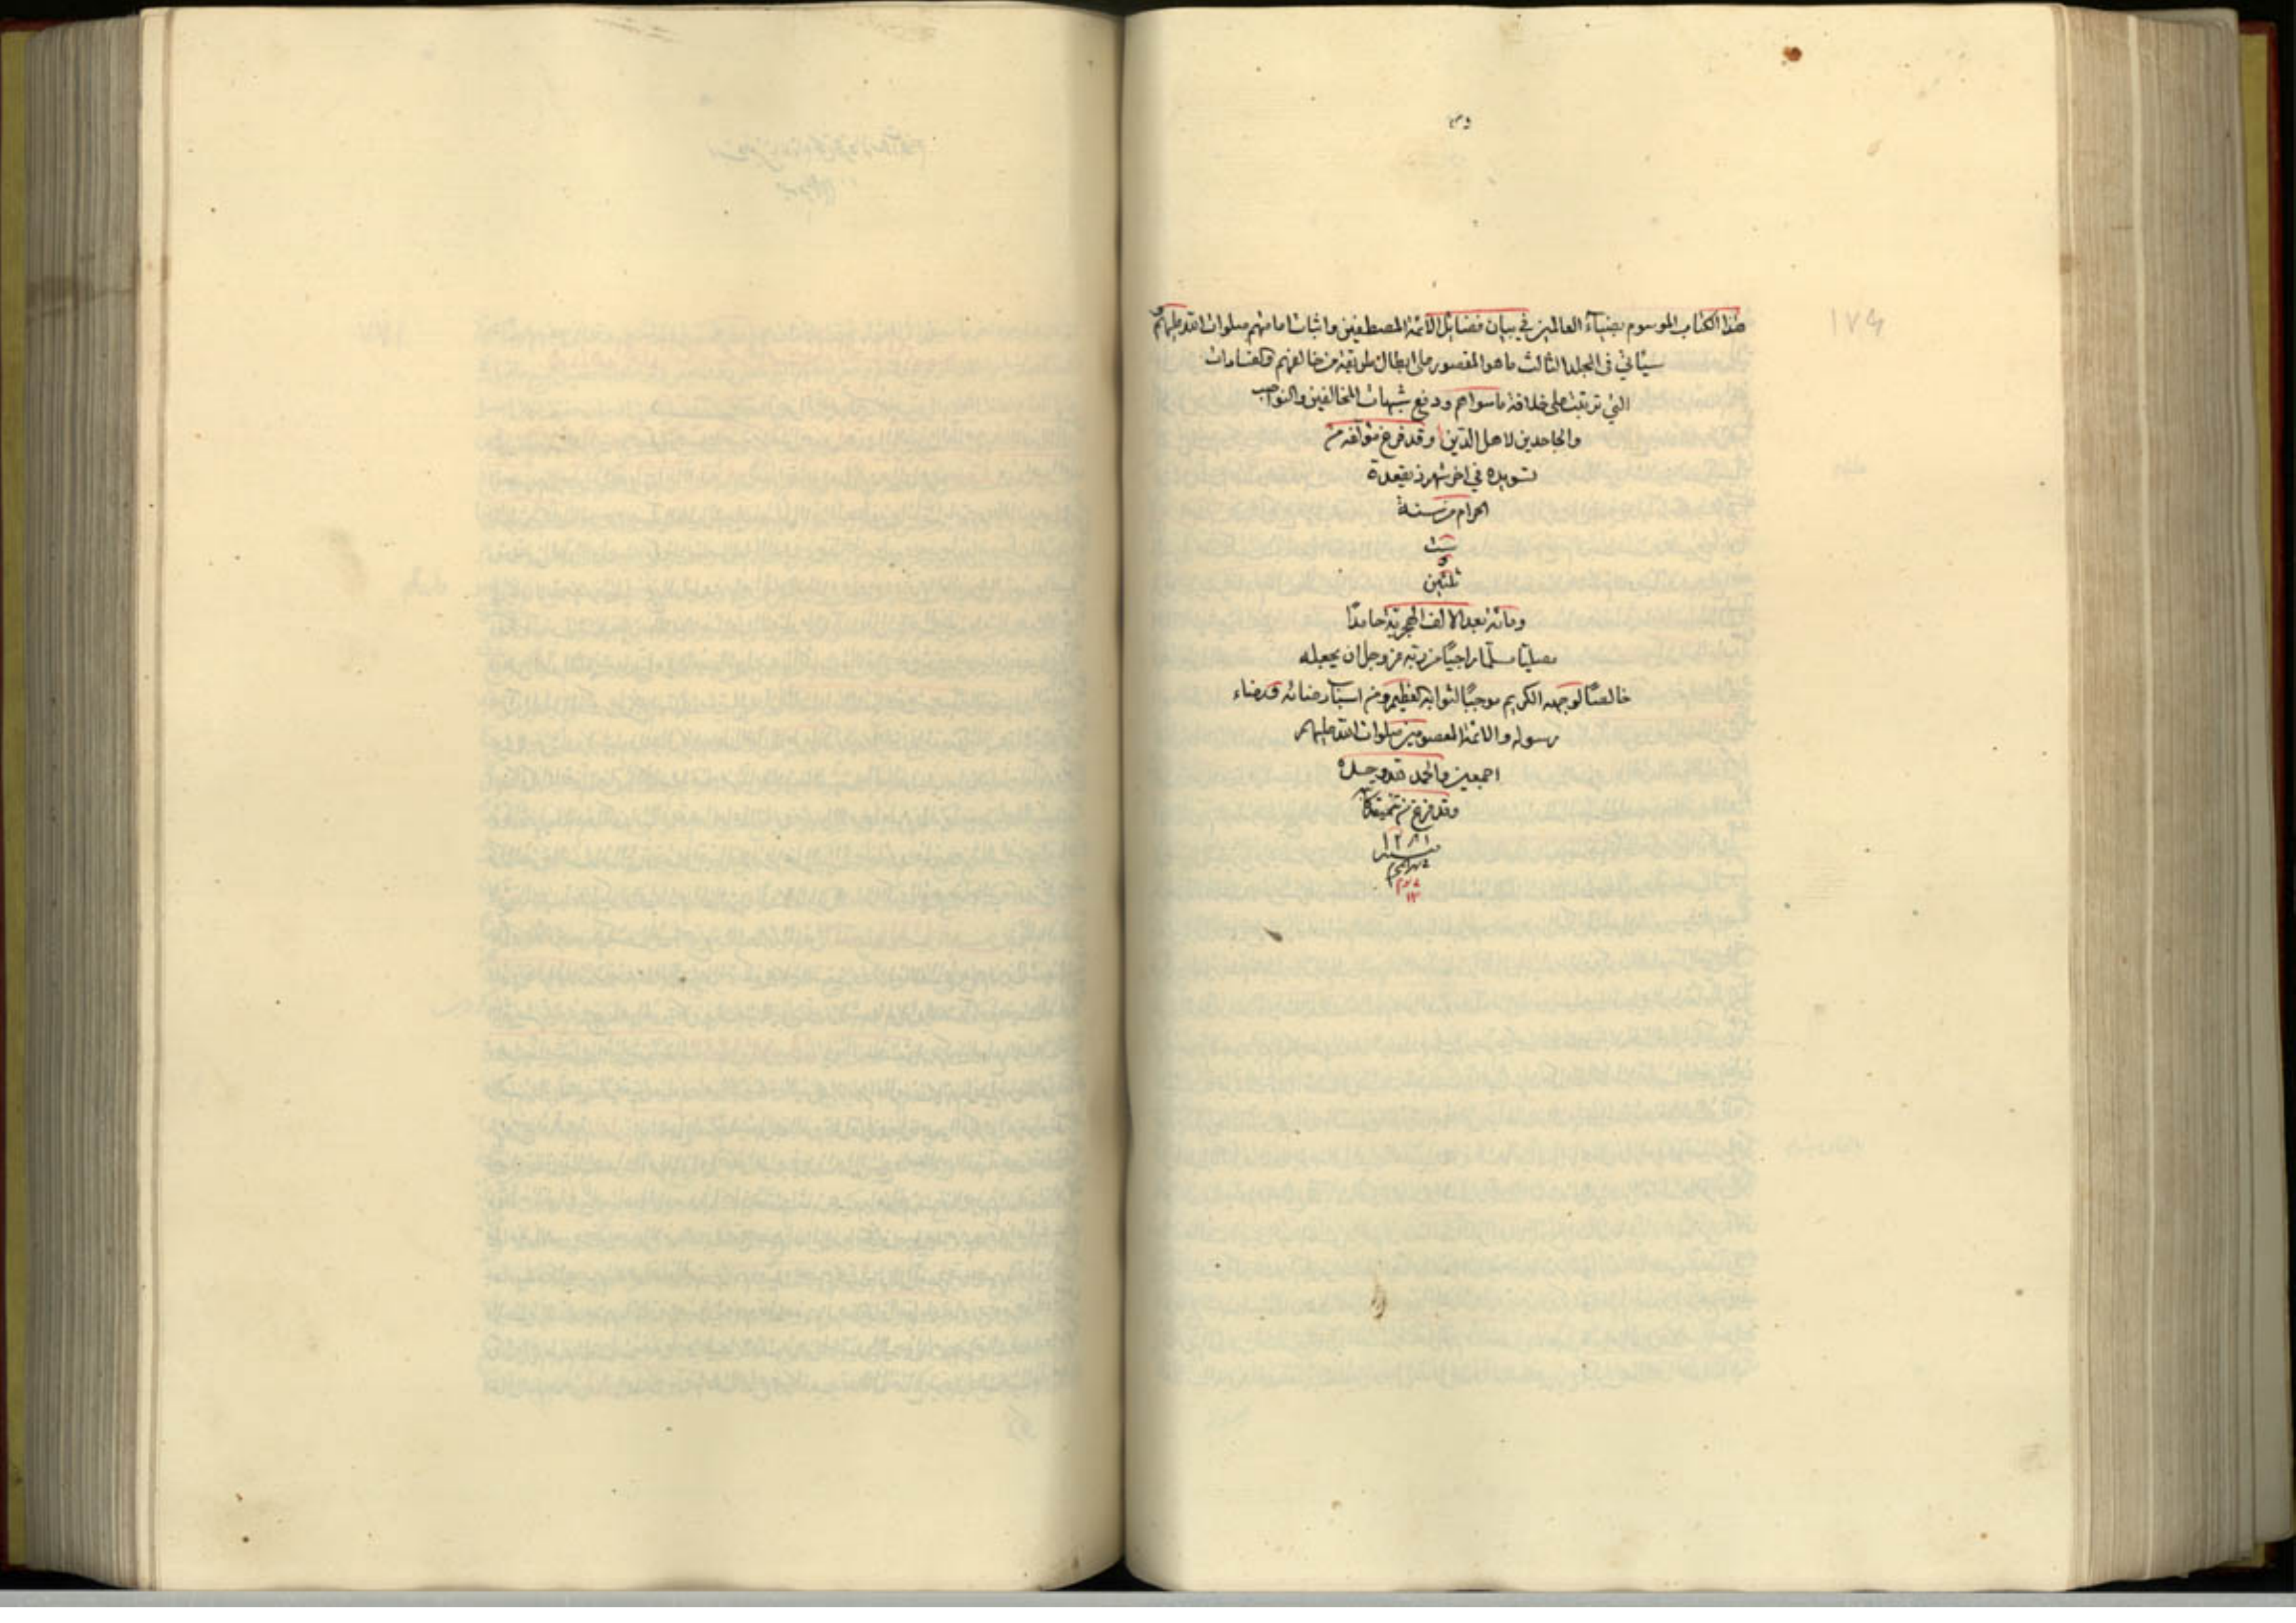 ١٧٤
هذا الكتاب الموسوم بضياء العالمين في بيان فضايل الائمة المصطفين واثبات امامتهم صلوات الله عليهم و
سيأتي في المجلد الثالث ما هو المقصور على ابطال طريقة من خالفهم
التي ترتبت على خلافة ما سواهم ودفع شبهات المخالفين والنواصب
والجاحدين لاهل الدين وقد فرغ مؤلفه من
تسويده في اخر شهر ذيقعدة
الحرام من سنة
ست
و
ثلثين
ومائة بعد الالف الهجرية حامدًا
مصليًا مسلمًا راجيًا من ربه عز وجل ان يجعله
خالصًا لوجهه الكريم موجبًا لثوابه العظيم ومن اسباب رضائه ورضاء
رسوله والائمة المعصومين صلوات الله عليهم
اجمعين والحمد لله وحده
وقد فرغ من تنميقه
١٢٨١